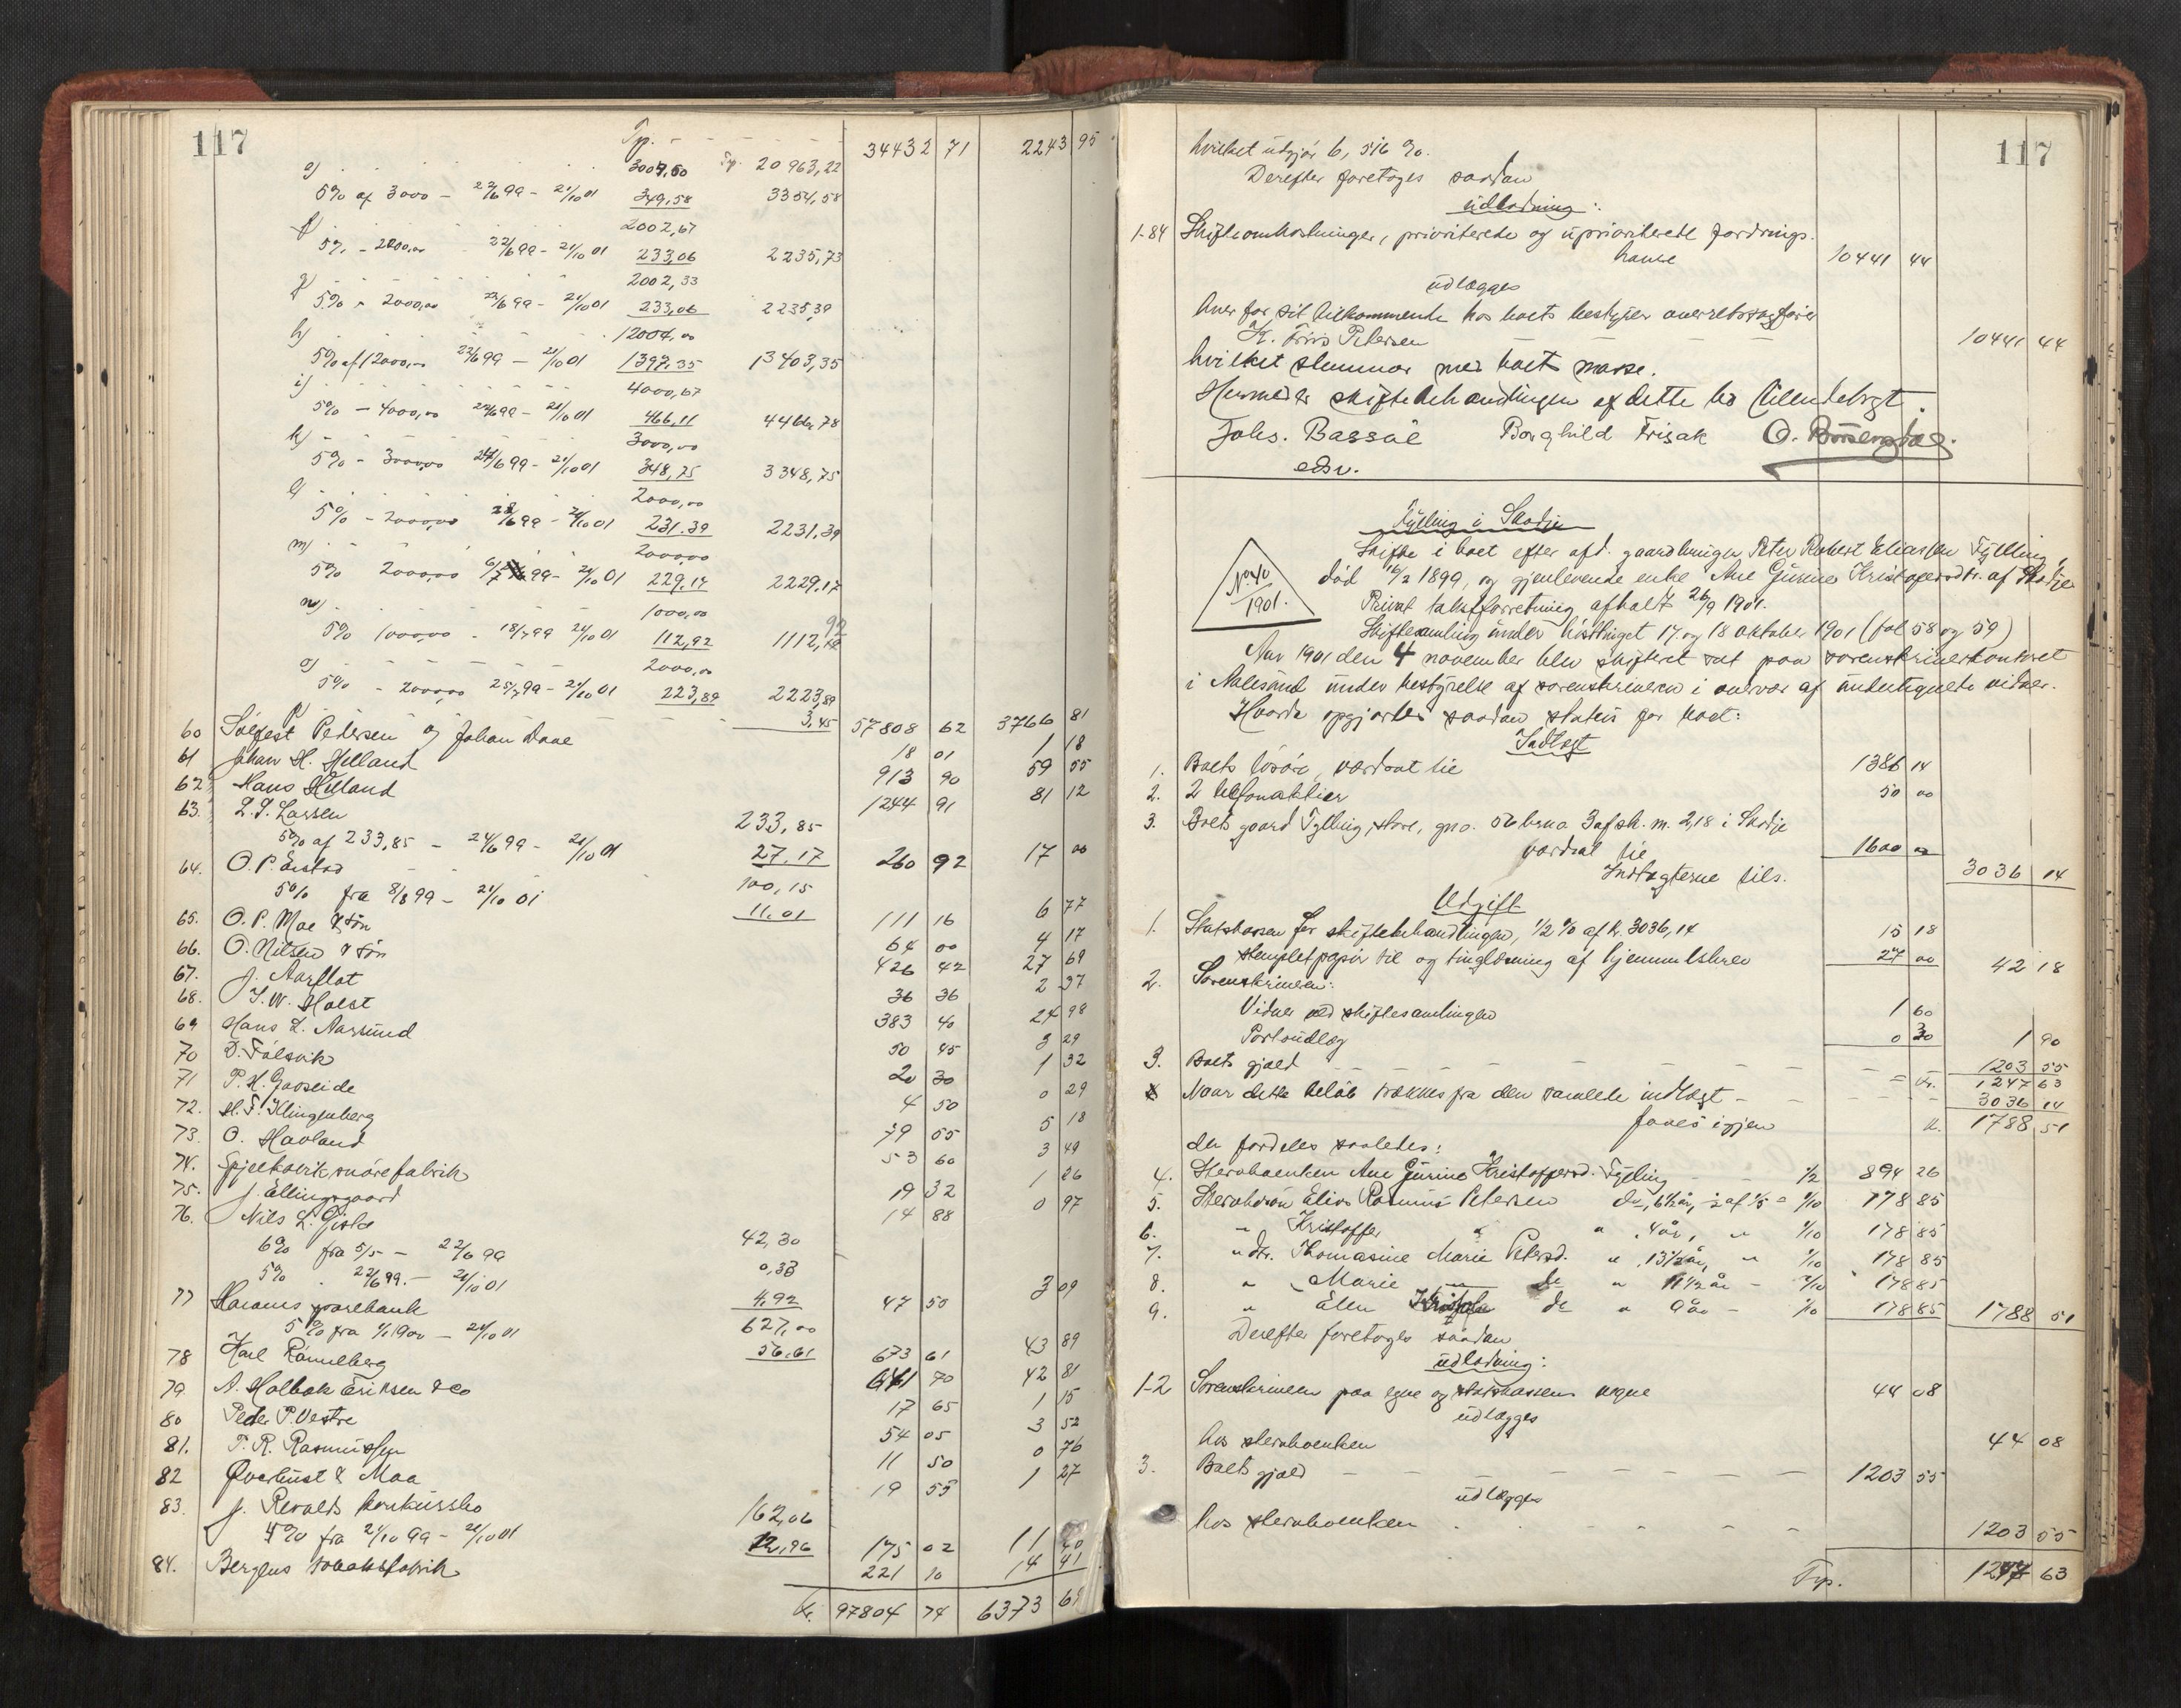 117
Trp. - - - - - 34432 71 2243 95
e) 3007,50 Trp. 20963,22
5% af 3000 - 22/6 99 - 21/10 01 349,58 3354,58
f) 2002,67
5% - 2000,00 22/6 99 - 21/10 01 233,06 2235,73
g) 2002,33
5% " 2000,00 22/6 99 - 21/10 01 233,06 2235,39
h) 12004,00
5% af 12000,00 22/6 99 - 21/10 01 1397,35 13403,35
i) 4000,67
5% - 4000,00 22/6 99 - 21/10 01 466,11 4466,78
k) 3000,00
5% - 3000,00 24/6 99 - 21/10 01 348,75 3348,75
l) 2000,00
5% - 2000,00 28/6 99 - 21/10 01 231.39 2231,39
m) 2000,00
5% 2000,00 6/7 99 - 21/10 01 229,17 2229,17
n) 1000,00
5% 1000,00 - 18/7 99 21/10 01 112,92 1112,92
o) 2000,00
5% - 2000,00 25/7 99 - 21/10 01 223,89 2223,89
p) 3,45 57808 62 3766 81
60 Sølfest Pedersen og Johan Dave 18 01 1 18
61 Johan H. Helland 913 90 59 55
62 Hans Helland 1244 91 81 12
63. L. J. Larsen 233,85
5% af 233,85 - 24/6 99 - 21/10 01 27.17 260 92 17 00
64. O. P. Erstad 100,15
5% fra 8/8 99 - 21/10 01 11.01 111 16 6 77
65. O. P. Moe & Søn 64 00 4 17
66. O. Nilsen & Søn 426 42 27 69
67. J. Aarflot 36 36 2 37
68. J. W. Holst 383 40 24 98
69 Hans L. Aarsund 50 45 3 29
70 D. Fålsvik 20 30 1 32
71 P. H. Gaaseide 4 50 0 29
72. H. F. Klingenberg 79 55 5 18
73. O. Havland 53 60 3 49
74. Spjelkavik snørefabrik 19 32 1 26
75. J. Ellingsgaard 14 88 0 97
76. Nils L. Giske 42,30
6% fra 5/5 - 22/6 99 0,33
5% . 22/6 99. - 21/10 01 4,92 47 50 3 09
77 Harams sparebank 627,00
5% fra 1/1 1900 - 21/10 01 56,61 673 61 43 89
78 Karl Rønneberg 661 70 42 81
79 A. Holbæk Eriksen & Co 17 65 1 15
80 Peder P. Vestre 54 05 3 52
81. P. R. Rasmussen 11 50 0 76
82 Qverhust & Moa 19 55 1 27
83. J. Revolds konkursbo 162,06
4% fra 21/10 99 - 21/10 01 12,96 175 02 11 40
84. Bergens tobaksfabrik 221 10 14 41
Kr. 97804 74 6373 68
117
hvilket udgjør 6,516 %.
Derefter foretages saadan
udlodning:
1-84 Skifteomkostninger, prioriterede og uprioriterede fordrings-
have 10441 44
udlægges
hver for sit tilkommende hos boets bestyrer overretssagfører
K. Friis Petersen - - - 10441 44
hvilket stemmer med boets masse.
Hermed er skiftebehandlingen af dette bo tilendebragt.
Johs. Bassøe Borghild Frisak
edsv.
Fylling i Skodje
No 40
1901.
Skifte i boet efter afd. gaardbruger Peter Robert Eliassen Fylling,
død 16/2 1899, og gjenlevende enke Ane Gurine Kristofersdtr. af Skodje
Privat takstforretning afholdt 26/9 1901.
Skiftesamling under høsttinget 17. og 18 oktober 1901 (fol 58 og 59)
Aar 1901 den 4 november blev skifteret sat paa sorenskriverkontoret
i Aalesund under bestyrelse af sorenskriveren i overvær af undertegnede vidner.
Hvorda opgjortes saadan status for boet:
Indtægt
1. Boets løsøre, værdsat til 1386 14
2. 2 telefonaktier 50 00
3. Boets gaard Fylling, store, gno. 56 bruno 3 af sk. m. 2,18 i Skodje
værdsat til 1600 00
Indtægterne tils. 3036 14
Udgift
1. Statskassen for skiftebehandlingen, 1/2 % af k. 3036,14 15 18
stemplet papir til og tinglæsning af hjemmelsbrev 27 00 42 18
2. Sorenskriveren:
Vidner ved skiftesamlingen 1 60
Portoudlæg 0 30 1 90
3. Boets gjæld - - - - - - 1203 55
= kr. 1247 63
Naar dette beløb trækkes fra den samlede indtægt - - - - 3036 14
faaes igjen k. 1788 51
der fordeles saaledes:
4. Stervboenken Ane Gurine Kristoffersd. Fylling - - 1/2 894 26
5. Stervbosøn Elias Rasmus Petersen do, 6 1/2 år, 1/2 af 1/5 = 1/10 178 85
6. " Kristoffer " " 4 år, " 1/10 178 85
7. " dtr. Thomasine Marie Petersd. " 13 1/2 år, " 1/10 178 85
8. " Marie do " 11 1/2 år - 1/10 178 85
9. " Ellen do " 9 år - 1/10 178 85 1788 51
Derefter foretoges saadan
udlodning:
1-2 Sorenskriveren paa egne og statskassens vegne 44 08
udlægges
hos stervboenken 44 08
3. Boets gjæld - - - - - - 1203 55
udlægges
hos stervboenken - - - - - 1203 55
Trp. 1247 63